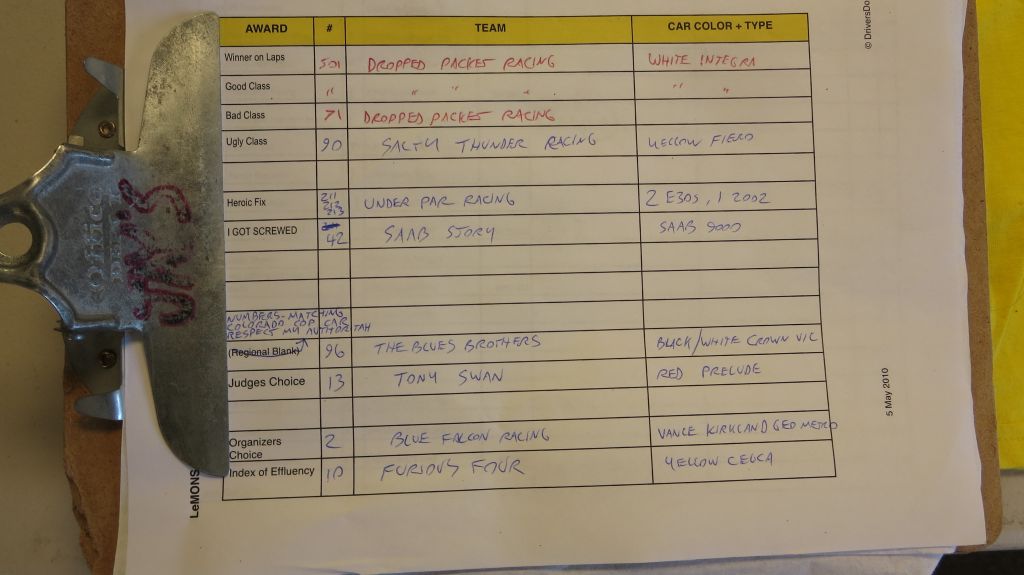 AWARD # TEAM CAR COLOR + TYPE
Winner on Laps 501 DROPPED PACKET RACING WHITE INTEGRA
Good Class " " " " " "
Bad Class 71 DROPPED PACKET RACING
Ugly Class 90 SALTY THUNDER RACING YELLOW FIERO
Heroic Fix 211 212 213 UNDER PAR RACING 2 E30S, 1 2002
I GOT SCREWED 42 SAAB STORY SAAB 9000
NUMBERS-MATCHING
COLORADO COP CAR
RESPECT MY AUTHORITAH
(Regional Blank) 96 THE BLUES BROTHERS BLACK/WHITE CROWN VIC
Judges Choice 13 TONY SWAN RED PRELUDE
Organizers
Choice 2 BLUE FALCON RACING VANCE KIRKLAND GEO METRO
Index of Effluency 10 FURIOUS FOUR YELLOW CELICA
LeMONS
5 May 2010
© DriversDo
JAY'S